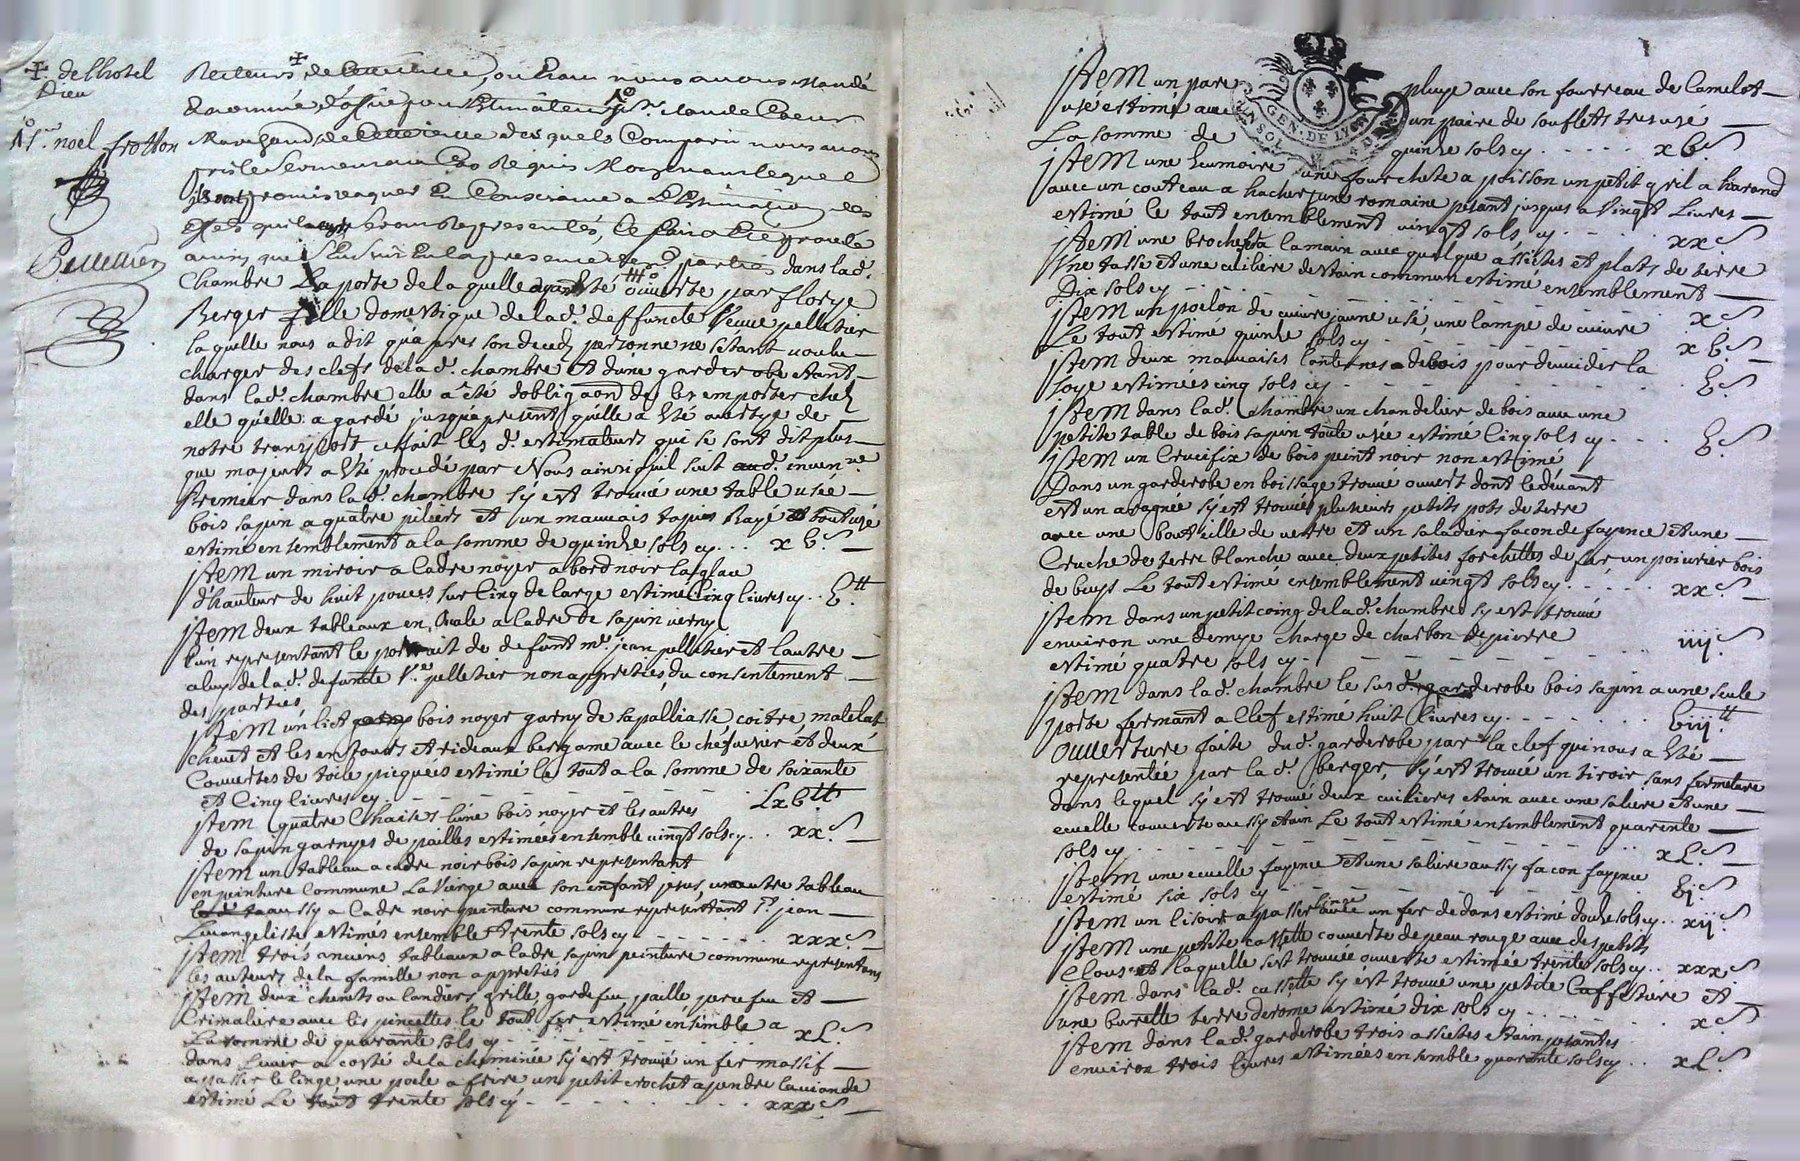 ✠ de lhotel
Dieu
1° Sr noel frotton
Pelletier
Recteurs ✠ de nous auons Mandé
Marchand de desquels Comparu nous auons
pris le Serment
promis vaquer En Conscience a L'Estimation des
ainsy que S'ensuit En la presence des d. parties dans lad.
Chambre La porte de laquelle ayant été ouuerte par florye
Berger fille domestique de lad. deffuncte Veuue pelletier
laquelle nous a dit qu'apres son deced personne ne setant voulu
charger des clefs de lad. chambre et dune garderobe etant
dans lad. chambre elle a été dobligaon de les emporter chez
elle quelle a gardé jusqua present quelle a Eté auertye de
notre transport ce fait les d. estimateurs qui se sont dit plus
que majeurs a Eté procedé par Nous ainsi quil suit aud. inuenre
Premier dans la d. chambre s'y est trouué une table usée
bois sapin a quatre piliers et un mauuais tapis Rayé et tout usé
estimé ensemblement a la somme de quinze sols cy ... x b. S
jtem un miroir a Cadre noyer a bord noir la glace
d'hauteur de huit pouces sur Cinq de large estimé Cinq liures cy .. b. tt
jtem deux tableaux en ouale a cadre de sapin verny
l'un representant le portrait de defunt mr. jean pelletier et lautre
aluy de lad. defuncte Ve. pelletier non appretiés du consentement
des parties
jtem un lict bois noyer garny de sa palliasse coitre matelat
cheuet et les entours et rideaux bergame auec le et deux
Couuertes de toile picquées estimé le tout a la somme de soixante
et Cinq liures cy - - - Lxb tt
jtem quatre Chaises lune bois noyer et les autres
de sapin garnyes de pailles estimées ensemble vingt sols cy .. xx. S
jtem un tableau a cadre noir bois sapin representant
en peinture Commune La Vierge auec son enfant jesus, un autre tableau
aussy a Cadre noir peinture commune representant St. jean
Leuangeliste estimés ensemble Trente sols cy - - - xxx. S
jtem trois anciens tableaux a cadre sapin peinture commune representans
les auteurs de la famille non appretiés
jtem deux chenets ou landiers grille, garde feu paille pare feu et
Crimaliere auec les pincettes le tout fer estimé ensemble a
La somme de quarante sols cy - - - xL. S
dans L'euier a costé de la cheminée s'y est trouué un fer massif
a passer le linge, une poele a frire un petit crochet a pendre la viande
estimé Le tout trente sols cy - - - xxx. S
jtem un para pluye auec son fourreau de Camelot
usé estimé auec un paire de souflets tres usé
La somme de quinze sols cy - - - x b. S
GEN. DE LYON
jtem une Ecumoire une fourchete a poisson un petit gril a harand
auec un couteau a hacher, une romaine pesant jusques a Vingt Liures
estimé le tout ensemblement vingt sols cy - - - xx S
jtem une broche a la main auec quelque assietes et plats de terre
Vne tasse et une cuiliere destain commun estimé ensemblement
Dix sols cy - - - x S
jtem un poilon de cuiure jaune usé, une lampe de cuiure
Le tout estimé quinze sols cy - - - x b. S
jtem deux mauuaises lanternes de bois pour deuuider la
soye estimées cinq sols cy - - - b. S
jtem dans lad. chambre un chandelier de bois auec une
petite table de bois sapin toute usée estimé Cinq sols cy - - - b. S
jtem un Crucifix de bois peint noir non estimé
Dans un garderobe en boissage trouué ouuert dont le deuant
est un s'y est trouué plusieurs petits pots de terre
auec une Bouteille de verre et un saladier façon de fayence et une
Cruche de terre blanche auec deux petites forchettes de fer un poiurier bois
de buys Le tout estimé ensemblement vingt sols cy - - - xx. S
jtem dans un petit coing de lad. chambre s'y est trouué
enuiron une demye Charge de charbon de pierre
estimé quatre sols cy - - - iiij. S
jtem dans lad. chambre le susd. garderobe bois sapin a une seule
porte fermant a Clef estimé huit Liures cy - - - biij. tt
Ouuerture faite dud. garderobe par la clef qui nous a Eté
representée par la d. Berger, s'y est trouué un tiroir sans fermeture
dans lequel s'y est trouué deux cuilieres etain auec une saliere et une
ecuelle couuerte aussy etain Le tout estimé ensemblement quarente
sols cy - - - xL. S
jtem une ecuelle fayence et une saliere aussy façon fayence
estimé six sols cy - - - bj. S
jtem un lisoir a passer linge auec un fer dedans estimé douze sols cy .. xij. S
jtem une petite cassette couuerte de peau rouge auec des petits
Clous et laquelle s'est trouuée ouuerte estimée trente sols cy .. xxx. S
jtem dans lad. cassette s'y est trouué une petite Caffetiere et
une burette terre de rome estimé dix sols cy - - - x. S
jtem dans lad. garderobe trois assietes etain pesantes
enuiron trois liures estimées ensemble quarante sols cy .. xL. S